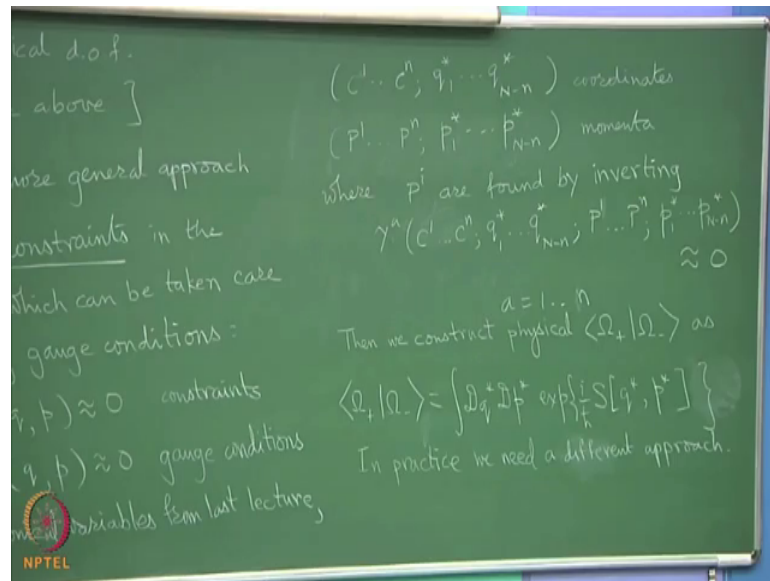 ical d.o.f.
above ]
more general approach
constraints in the
which can be taken care
gauge conditions:
, p) ≈ 0 constraints
(q, p) ≈ 0 gauge conditions
variables from last lecture,
(c¹ ·· cⁿ; q₁* ··· q*_{N-n}) coordinates
(p¹ ·· pⁿ; p₁* ··· p*_{N-n}) momenta
where pⁱ are found by inverting
γᵃ(c¹ ·· cⁿ; q₁* ·· q*_{N-n}; p¹ ·· pⁿ; p₁* ·· p*_{N-n})
≈ 0
a = 1 ·· n
Then we construct physical ⟨Ω₊|Ω₋⟩ as
⟨Ω₊|Ω₋⟩ = ∫𝒟q* 𝒟p* exp{i/ħ S[q*, p*]}
In practice we need a different approach.
NPTEL